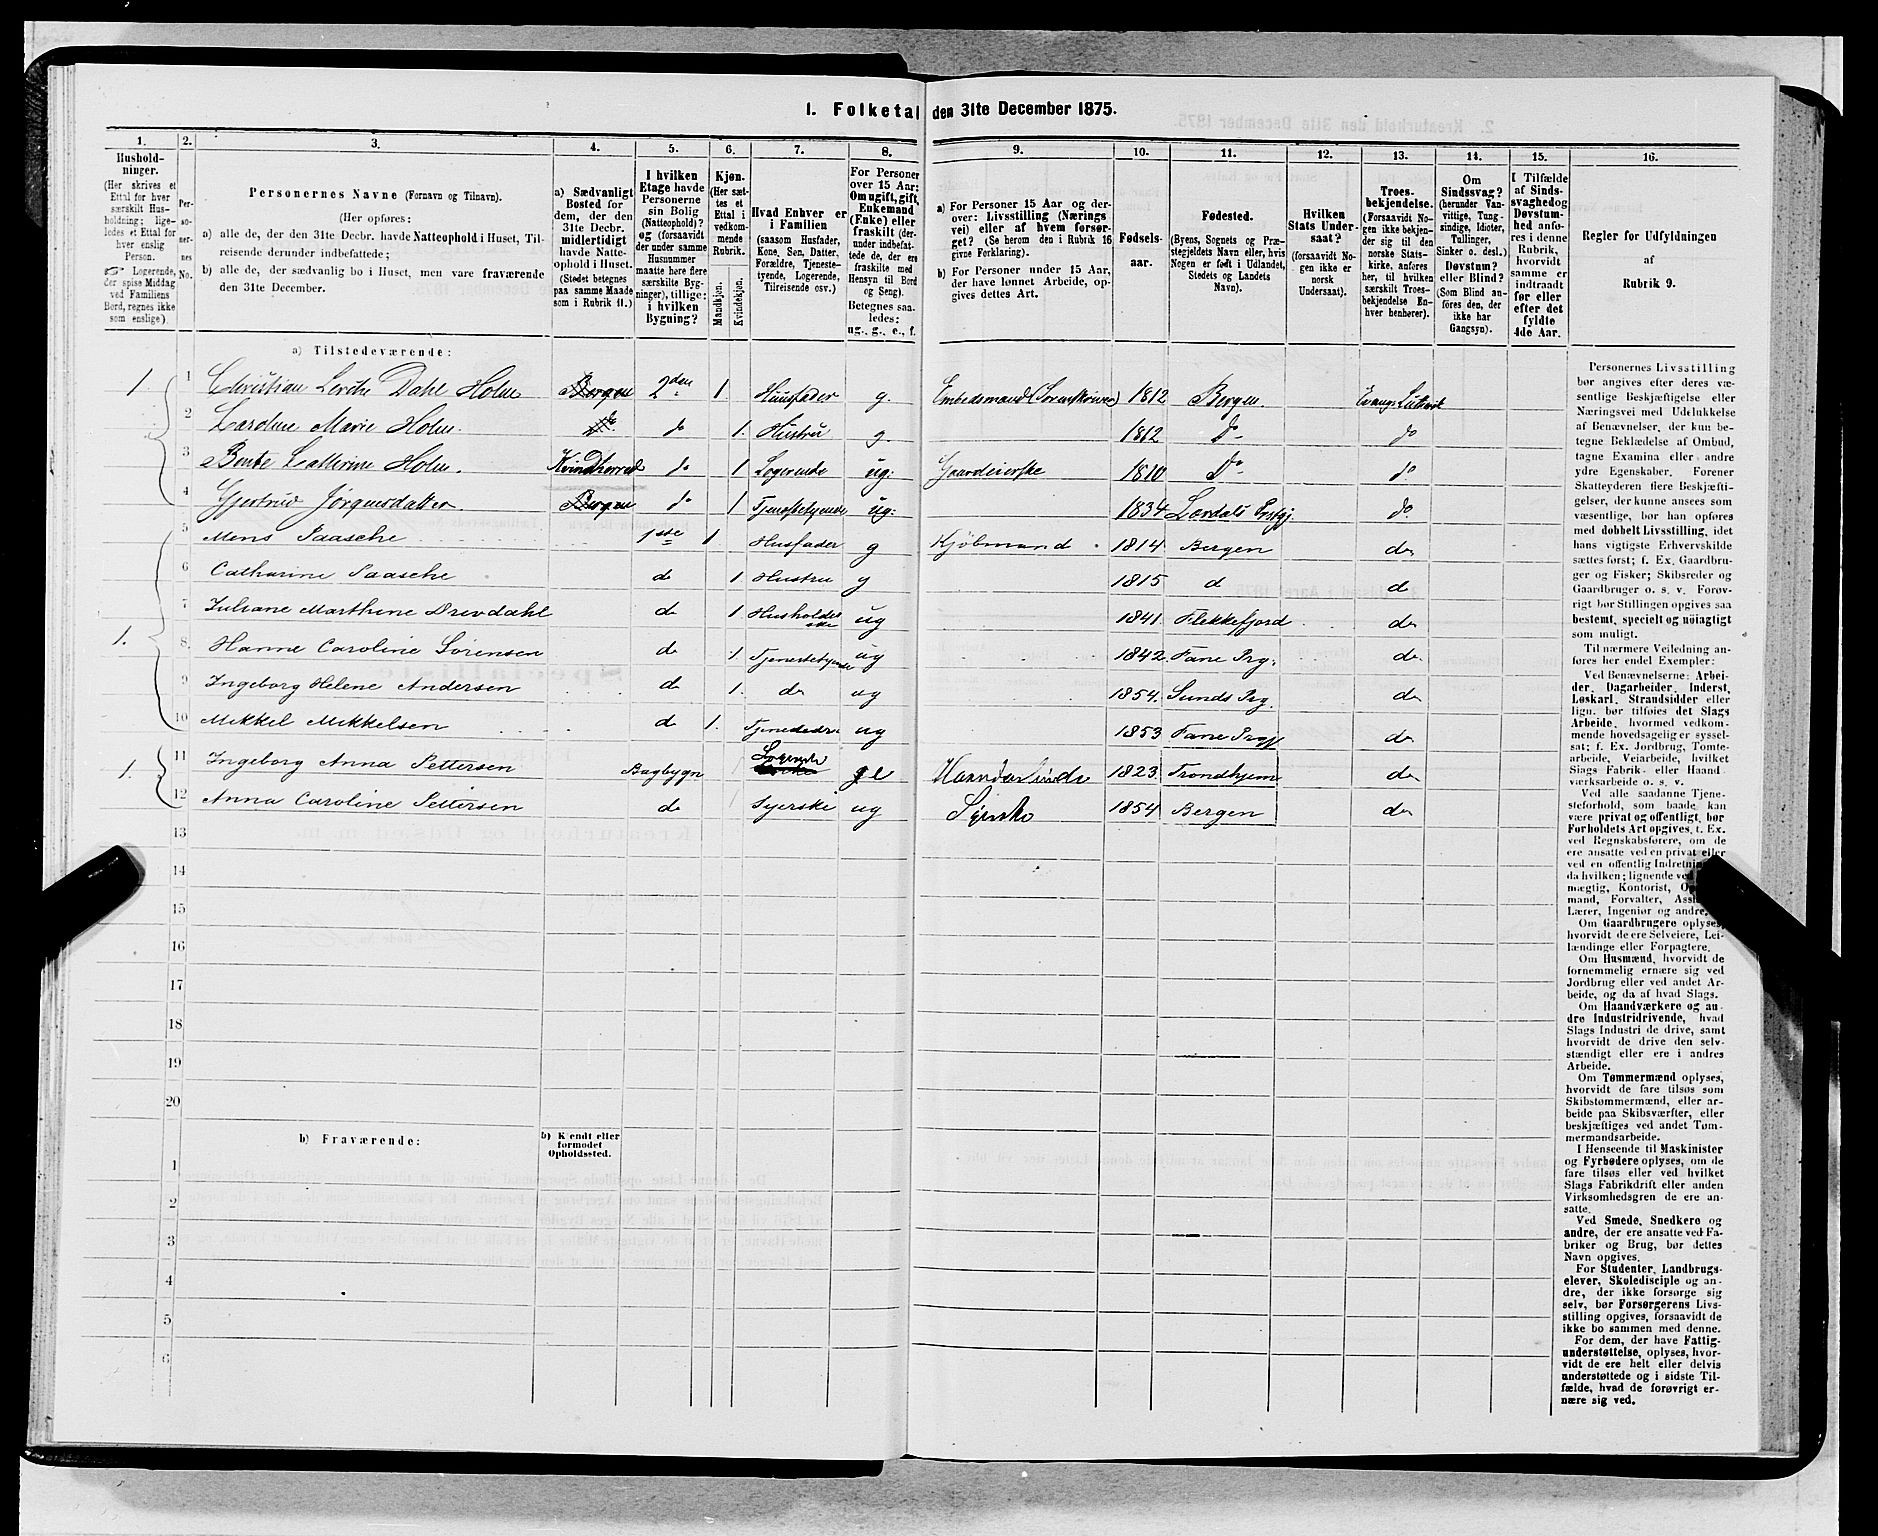 1. Folketal den 31te December 1875.
1.
Hushold-
ninger.
(Her skrives et
Ettal for hver
særskilt Hus-
holdning; lige-
ledes et Ettal for
hver enslig
Person.
☞ Logerende,
der spise Middag
ved Familiens
Bord, regnes ikke
som enslige.)
2.
Per-
so-
ner-
nes
No.
3.
Personernes Navne (Fornavn og Tilnavn).
(Her opføres:
a) alle de, der den 31te Decbr. havde Natteophold i Huset, Til-
reisende derunder indbefattede;
b) alle de, der sædvanlig bo i Huset, men vare fraværende
den 31te December.
4.
a) Sædvanligt
Bosted for
dem, der den
31te Decbr.
midlertidigt
havde Natte-
ophold i Huset.
(Stedet betegnes
paa samme Maade
som i Rubrik 11.)
5.
I hvilken
Etage havde
Personerne
sin Bolig
(Natteophold)?
og (forsaavidt
der under samme
Husnummer
maatte høre flere
særskilte Byg-
ninger), tillige:
i hvilken
Bygning?
6.
Kjøn.
(Her sæt-
tes et
Ettal i
vedkom-
mende
Rubrik.
Mandkjøn.
Kvindekjøn.
7.
Hvad Enhver er
i Familien
(saasom Husfader,
Kone, Søn, Datter,
Forældre, Tjeneste-
tyende, Logerende,
Tilreisende osv.)
8.
For Personer
over 15 Aar:
Om ugift, gift,
Enkemand
(Enke) eller
fraskilt (der-
under indbefat-
tede de, der ere
fraskilte med
Hensyn til Bord
og Seng).
Betegnes saa-
ledes:
ug., g., e., f.
9.
a) For Personer 15 Aar og der-
over: Livsstilling (Nærings
vei) eller af hvem forsør-
get? (Se herom den i Rubrik 16
givne Forklaring).
b) For Personer under 15 Aar,
der have lønnet Arbeide, op-
gives dettes Art.
10.
Fødsels-
aar.
11.
Fødested.
(Byens, Sognets og Præ-
stegjeldets Navn eller, hvis
Nogen er født i Udlandet,
Stedets og Landets
Navn).
12.
Hvilken
Stats Under-
saat?
(forsaavidt No-
gen ikke er
norsk
Undersaat).
13.
Troes-
bekjendelse.
(Forsaavidt No-
gen ikke bekjen-
der sig til den
norske Stats-
kirke, anføres
her, til hvilken
særskilt Troes-
bekjendelse En-
hver henhører).
14.
Om
Sindssvag?
(herunder Van-
vittige, Tung-
sindige, Idioter,
Tullinger,
Sinker o. desl.)
Døvstum?
eller Blind?
(Som Blind an-
føres den, der
ikke har
Gangsyn).
15.
I Tilfælde
af Sinds-
svaghed og
Døvstum-
hed anfø-
res i denne
Rubrik,
hvorvidt
samme er
indtraadt
før eller
efter det
fyldte
4de Aar.
16.
Regler for Udfyldningen
af
Rubrik 9.
a) Tilstedeværende:
1 1 Christian Lerche Dahl Holm Bergen 2den 1 Huusfader g. Embedsmand (Sorenskriver) 1812 Bergen. Evang. Luthersk
2 Caroline Marie Holm. do do 1. Hustru g. 1812 Do do
3 Bente Catterine Holm. Kvindherred do 1 Logerende ug: Gaardeierske 1810 Do do
4 Gjertrud Jørgensdatter Bergen do 1 Tjenestetyende ug: 1834 Lærdals Prstgj. do
5 Mons Paasche 1ste 1 Husfader g Kjøbmand 1814 Bergen do
6 Catharine Paasche d 1 Hustru g 1815 d d
7 Juliane Marthine Drevdahl d 1 Husholderske ug 1841. Flekkefjord do
1. 8. Hanne Caroline Sörensen d 1 Tjenestetyende ug 1842 Fane Prg. do
9 Ingeborg Helene Andersen d 1. do ug 1854. Sunds Prg. do
10 Mikkel Mikkelsen d 1. Tjenededre ug 1853 Fane Prgj do
1. 11 Ingeborg Anna Pettersen Bagbygn / Logerende e 1823 Trondhjem do
12 Anna Caroline Pettersen d / Syerske ug Syerske 1854 Bergen do
13
14
15
16
17
18
19
20
b) Fraværende:
b) Kendt eller
formodet
Opholdssted.
1
2
3
4
5
6
Personernes Livsstilling
bør angives efter deres væ-
sentlige Beskjæftigelse eller
Næringsvei med Udelukkelse
af Benævnelser, der kun be-
tegne Beklædelse af Ombud,
tagne Examina eller andre
ydre Egenskaber. Forener
Skatteyderen flere Beskjæfti-
gelser, der kunne ansees som
væsentlige, bør han opføres
med dobbelt Livsstilling, idet
hans vigtigste Erhvervskilde
sættes først; f. Ex. Gaardbru-
ger og Fisker; Skibsreder og
Gaardbruger o. s. v. Forøv-
rigt bør Stillingen opgives saa
bestemt, specielt og nöiagtigt
som muligt.
Til nærmere Veiledning an-
føres her endel Exempler:
Ved Benævnelserne: Arbei-
der, Dagarbeider, Inderst,
Løskarl, Strandsidder eller
lign. bør tilføies det Slags
Arbeide, hvormed vedkom-
mende hovedsagelig er syssel-
sat; f. Ex. Jordbrug, Tomte-
arbeide, Veiarbeide, hvilket
Slags Fabrik- eller Haand-
værksarbeide o. s. v.
Ved alle saadanne Tjene-
steforhold, som baade kan
være privat og offentligt, bør
Forholdets Art opgives, t. Ex.
ved Regnskabsførere, om de
ere ansatte ved en privat eller
ved en offentlig Indretnin
da hvilken; lignende ve
mægtig, Kontorist, O
mand, Forvalter, Ass
Lærer, Ingeniør og andre.
Om Gaardbrugere oplyses,
hvorvidt de ere Selveiere, Lei-
lændinge eller Forpagtere.
Om Husmænd, hvorvidt de
fornemmelig ernære sig ved
Jordbrug eller ved andet Ar-
beide, og da af hvad Slags.
Om Haandværkere og an-
dre Industridrivende, hvad
Slags Industri de drive, samt
hvorvidt de drive den selv-
stændigt eller ere i andres
Arbeide.
Om Tømmermænd oplyses,
hvorvidt de fare tilsøs som
Skibstømmermænd, eller ar-
beide paa Skibsværfter, eller
beskjæftiges ved andet Tøm-
mermandsarbeide.
I Henseende til Maskinister
og Fyrbødere oplyses, om de
fare tilsøs eller ved hvilket
Slags Fabrikdrift eller anden
Virksomhedsgren de ere an-
satte.
Ved Smede, Snedkere og
andre, der ere ansatte ved Fa-
briker og Brug, bør dettes
Navn opgives.
For Studenter, Landbrugs-
elever, Skoledisciple og an-
dre, der ikke forsørge sig
selv, bør Forsørgerens Livs-
stilling opgives, forsaavidt de
ikke bo sammen med denne.
For dem, der have Fattig-
understøttelse, oplyses, hvor-
vidt de ere helt eller delvis
understøttede og i sidste Til-
fælde, hvad de forøvrigt er-
nære sig ved.